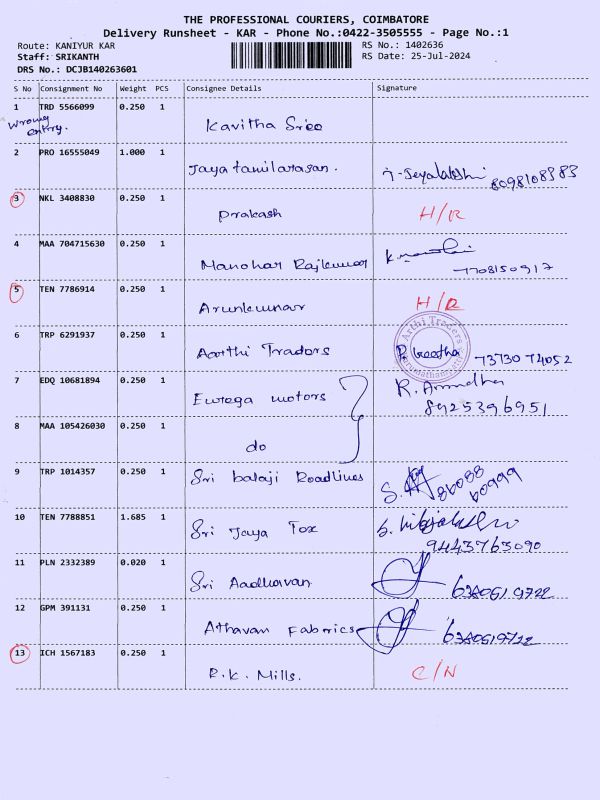 THE PROFESSIONAL COURIERS, COIMBATORE
Delivery Runsheet - KAR - Phone No.:0422-3505555 - Page No.:1
Route: KANIYUR KAR RS No.: 1402636
Staff: SRIKANTH RS Date: 25-Jul-2024
DRS No.: DCJB140263601
S No Consignment No Weight PCS Consignee Details Signature
1 TRD 5566099 0.250 1 Kavitha Sree
Wrong entry.
2 PRO 16555049 1.000 1 Jaya tamilarasan. 8098108383
3 NKL 3408830 0.250 1 Prakash H/R
4 MAA 704715630 0.250 1 Manohar Rajkumar 7708150917
5 TEN 7786914 0.250 1 Arunkumar H/R
6 TRP 6291937 0.250 1 Aarthi Tradors P. Geetha 73730 74052
Arthi Traders
7 EDQ 10681894 0.250 1 Eurega motors R. Amudha
8925396951
8 MAA 105426030 0.250 1 do
9 TRP 1014357 0.250 1 Sri balaji Roadlines 86088 60999
10 TEN 7788851 1.685 1 Sri Jaya Tex
9443763090
11 PLN 2332389 0.020 1 Sri Aadhavan 6380619722
12 GPM 391131 0.250 1 Athavan Fabrics 6380619722
13 ICH 1567183 0.250 1 R.K. Mills. C/N